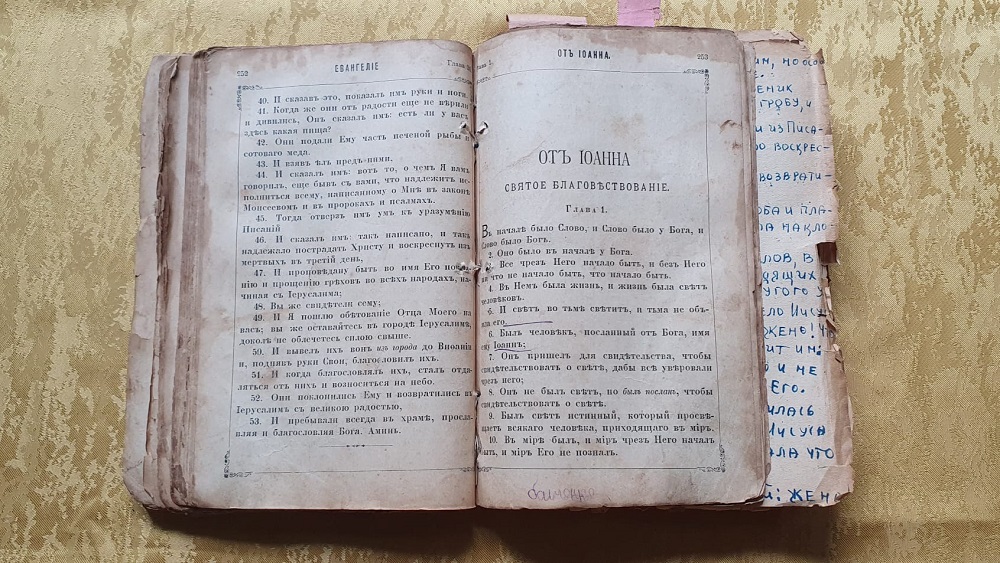 252
ЕВАНГЕЛІЕ
Глава
40. И сказавъ это, показалъ имъ руки и ноги.
41. Когда же они отъ радости еще не вѣрили
и дивились, Онъ сказалъ имъ: есть ли у васъ
здѣсь какая пища?
42. Они подали Ему часть печеной рыбы и
сотоваго меда.
43. И взявъ ѣлъ предъ ними.
44. И сказалъ имъ: вотъ то, о чемъ Я вамъ
говорилъ, еще бывъ съ вами, что надлежитъ ис-
полниться всему, написанному о Мнѣ въ законѣ
Моисеевомъ и въ пророкахъ и псалмахъ.
45. Тогда отверзъ имъ умъ къ уразумѣнію
Писаній
46. И сказалъ имъ: такъ написано, и такъ
надлежало пострадать Христу и воскреснуть изъ
мертвыхъ въ третій день,
47. И проповѣдану быть во имя Его покая-
нію и прощенію грѣховъ во всѣхъ народахъ, на-
чиная съ Іерусалима;
48. Вы же свидѣтели сему;
49. И Я пошлю обѣтованіе Отца Моего на
васъ; вы же оставайтесь въ городѣ Іерусалимѣ,
доколѣ не облечетесь силою свыше.
50. И вывелъ ихъ вонъ изъ города до Виѳаніи
и, поднявъ руки Свои, благословилъ ихъ.
51. И когда благословлялъ ихъ, сталъ отда-
ляться отъ нихъ и возноситься на небо.
52. Они поклонились Ему и возвратились въ
Іерусалимъ съ великою радостью,
53. И пребывали всегда въ храмѣ, просла-
вляя и благословляя Бога. Аминь.
ОТЪ ІОАННА.
253
ОТЪ ІОАННА
СВЯТОЕ БЛАГОВѢСТВОВАНІЕ.
Глава 1.
Въ началѣ было Слово, и Слово было у Бога, и
Слово было Богъ.
2. Оно было въ началѣ у Бога.
3. Все чрезъ Него начало быть, и безъ Него
ни что не начало быть, что начало быть.
4. Въ Немъ была жизнь, и жизнь была свѣтъ
человѣковъ.
5. И свѣтъ во тьмѣ свѣтитъ, и тьма не объ-
яла его.
6. Былъ человѣкъ, посланный отъ Бога, имя
ему Іоаннъ;
7. Онъ пришелъ для свидѣтельства, чтобы
свидѣтельствовать о свѣтѣ, дабы всѣ увѣровали
чрезъ него;
8. Онъ не былъ свѣтъ, но былъ посланъ, чтобы
свидѣтельствовать о свѣтѣ.
9. Былъ свѣтъ истинный, который просвѣ-
щаетъ всякаго человѣка, приходящаго въ міръ.
10. Въ мірѣ былъ, и міръ чрезъ Него началъ
быть, и міръ Его не позналъ.
ГРОБУ, И
И ИЗ ПИСА-
ВОСКРЕС-
ВОЗВРАТИ-
И ПЛА-
НАКЛО-
В
ИИСУ
ЧТО
И НЕ
ЕГО.
ИИСУСА
ЧТО
ЖЕНА